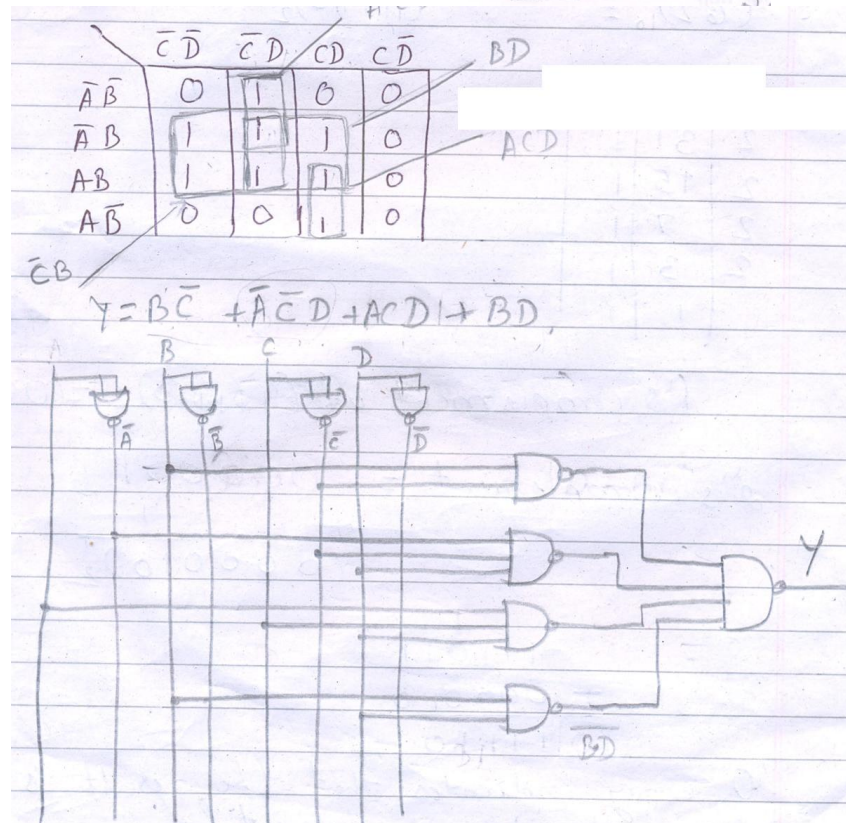 C̅ D̅ C̅ D CD C D̅ BD
A̅ B̅ 0 1 0 0
A̅ B 1 1 1 0 ACD
AB 1 1 1 0
A B̅ 0 0 1 0
C̅ B
Y = B C̅ + A̅ C̅ D + ACD + BD
A B C D
A̅ B̅ C̅ D̅
Y
B̅D̅